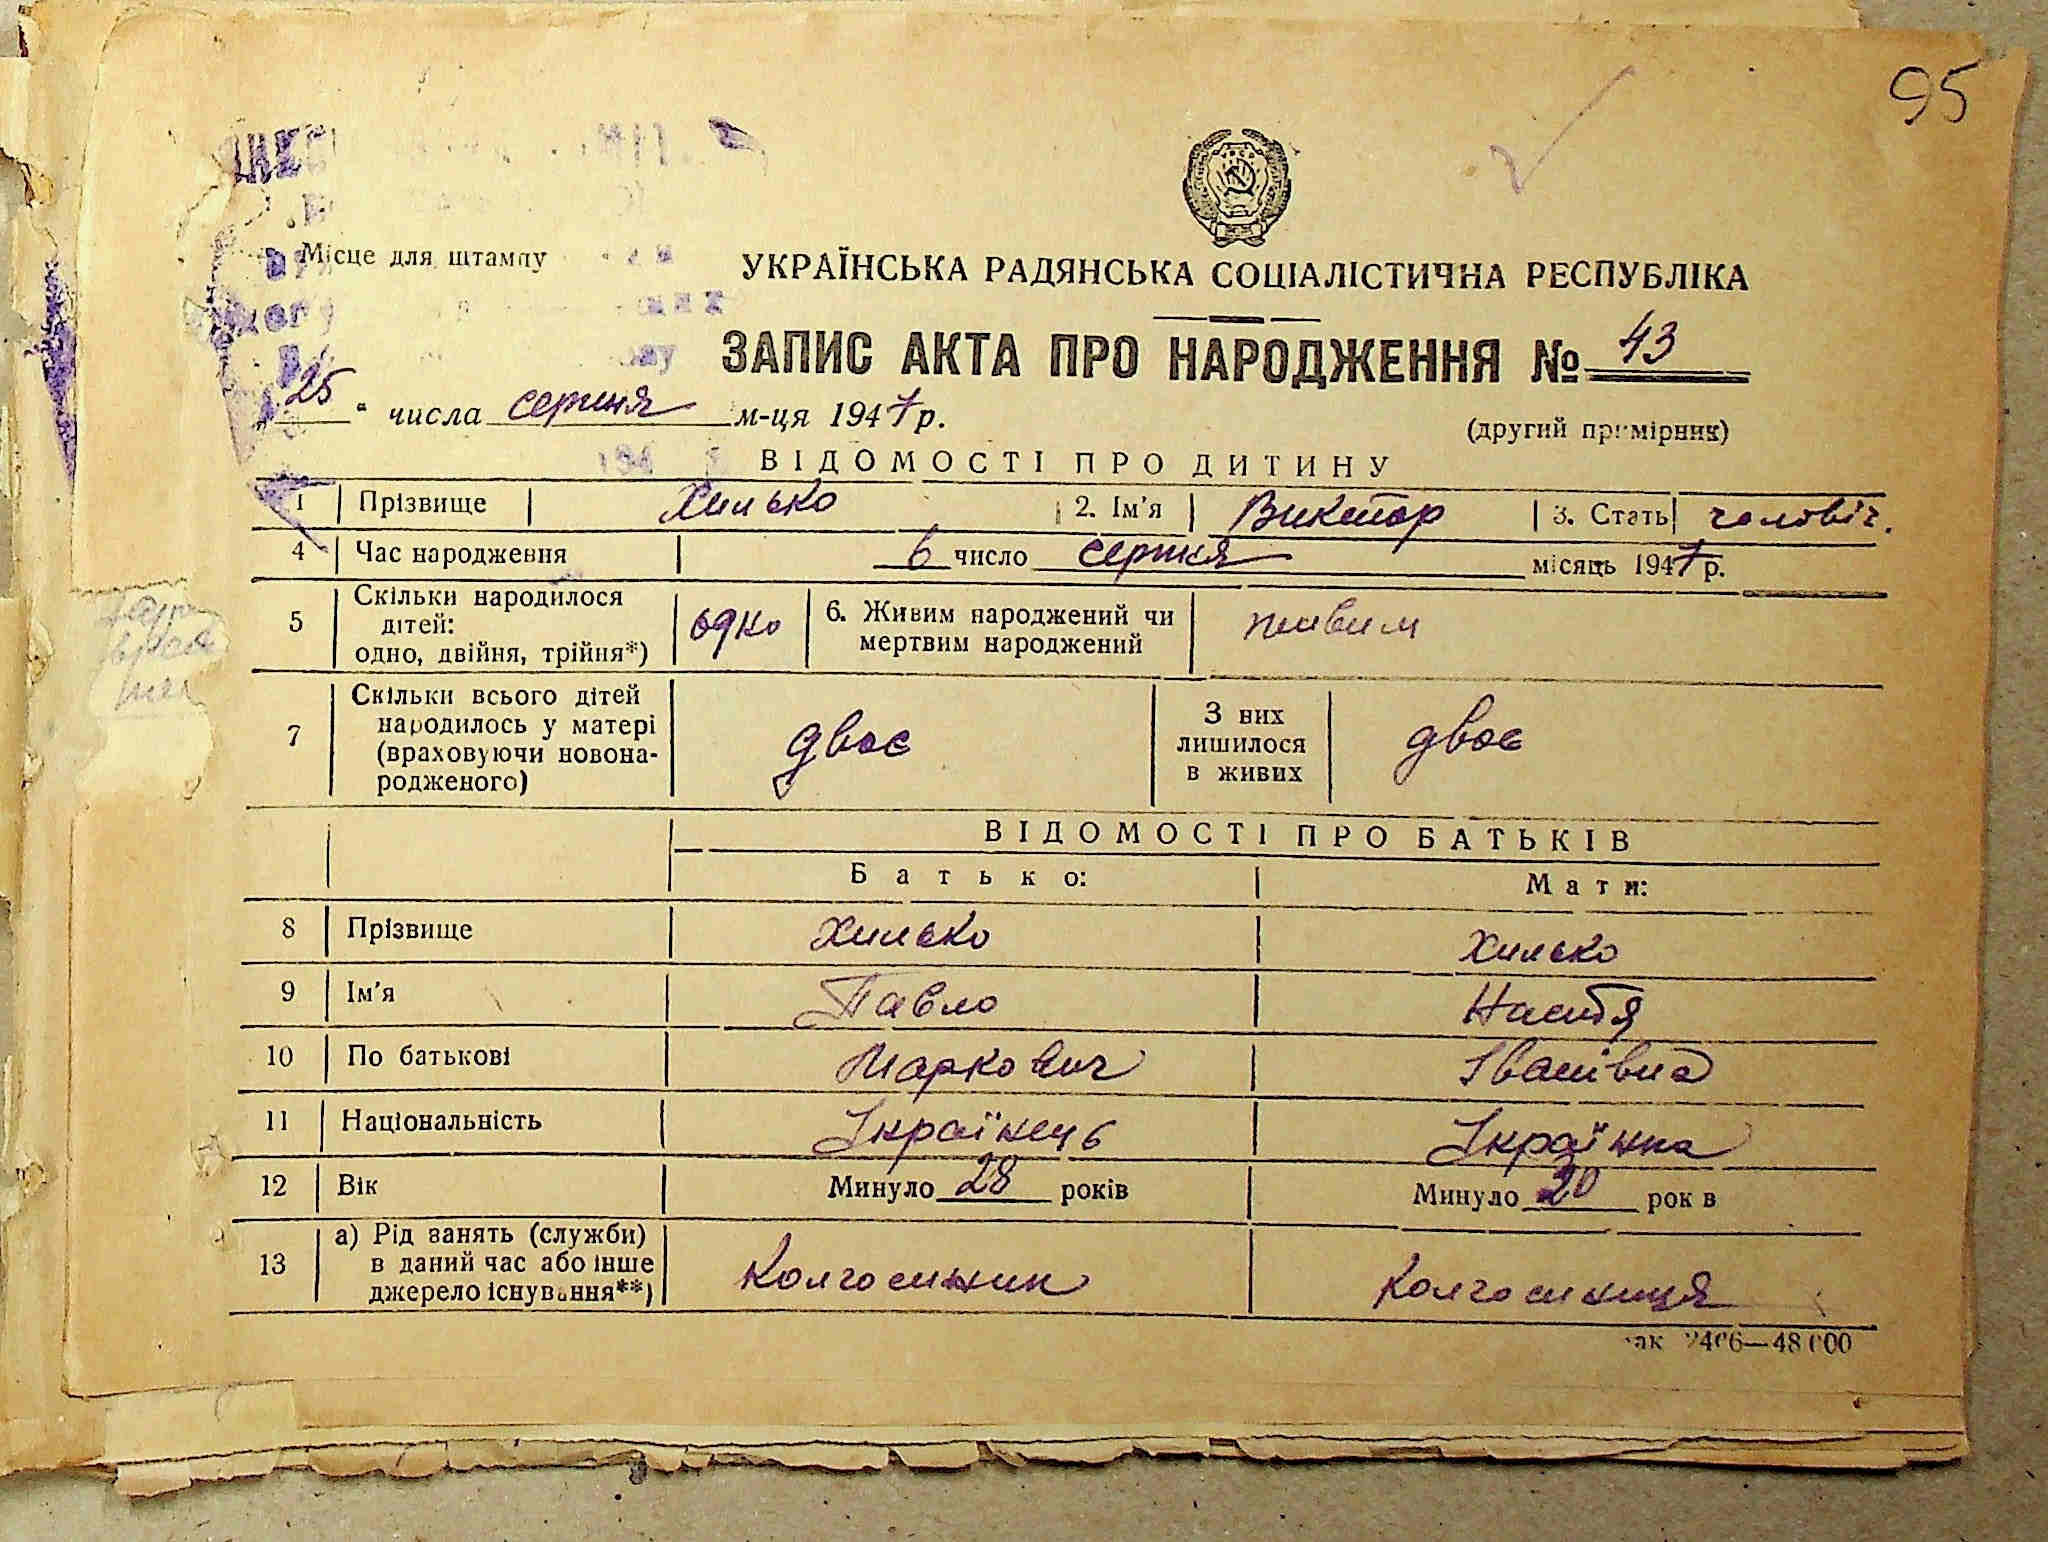 95
Місце для штампу
УКРАЇНСЬКА РАДЯНСЬКА СОЦІАЛІСТИЧНА РЕСПУБЛІКА
ЗАПИС АКТА ПРО НАРОДЖЕННЯ № 43
25 " числа серпня м-ця 1947 р.
(другий примірник)
ВІДОМОСТІ ПРО ДИТИНУ
1 Прізвище Хилько 2. Ім'я Виктор 3. Стать чоловіч.
4 Час народження 6 число серпня місяць 1947 р.
5 Скільки народилося дітей: одно, двійня, трійня*) одно 6. Живим народжений чи мертвим народжений живим
7 Скільки всього дітей народилось у матері (враховуючи новонародженого) двоє З них лишилося в живих двоє
ВІДОМОСТІ ПРО БАТЬКІВ
Батько: Мати:
8 Прізвище Хилько Хилько
9 Ім'я Павло Настя
10 По батькові Маркович Іванівна
11 Національність Українець Українка
12 Вік Минуло 28 років Минуло 20 рок в
13 а) Рід занять (служби) в даний час або інше джерело існування**) Колгоспник Колгоспниця